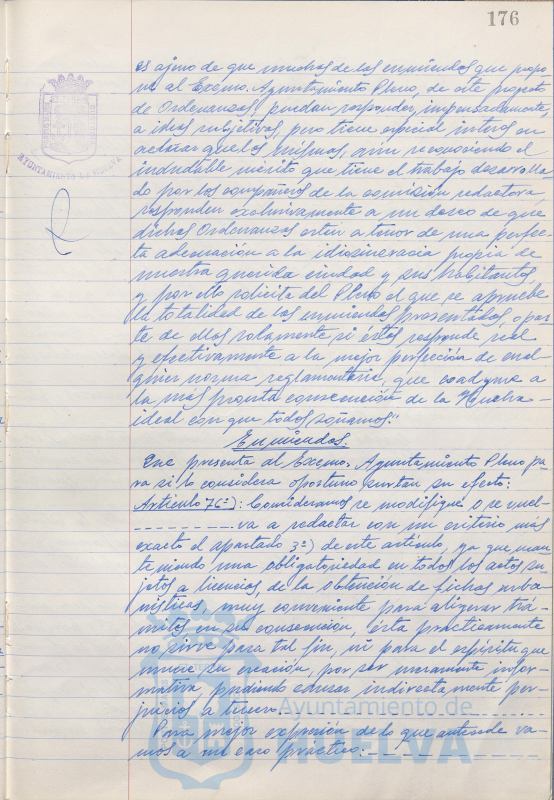 176
es ajeno de que muchas de las enmiendas que propo
ne al Excmo. Ayuntamiento Pleno, de este proyecto
de Ordenanzas, puedan responder, impensadamente,
a ideas subjetivas, pero tiene especial interés en
aclarar que los mismos, aún reconociendo el
indudable mérito que tiene el trabajo desarrolla
do por los compañeros de la comisión redactora,
responden exclusivamente a un deseo de que
dichas Ordenanzas estén a tenor de una perfec-
ta adecuación a la idiosincracia propia de
nuestra querida ciudad y sus habitantes,
y por ello solicita del Pleno el que se apruebe
la totalidad de las enmiendas presentadas, o par
te de ellas solamente, si éstas responde real
y efectivamente a la mejor perfección de cual
quier norma reglamentaria, que coadyuve a
la más pronta consecución de la Huelva
ideal con que todos soñamos."
Enmiendas.
Que presenta al Excmo. Ayuntamiento Pleno pa
ra si lo considera oportuno surtan su efecto:
Artículo 76º): Consideramos se modifique o se vuel-
va a redactar con un criterio más
exacto el apartado 3º) de este artículo, ya que man
teniendo una obligatoriedad en todos los actos su
jetos a licencias, de la obtención de fichas urba
nísticas, muy conveniente para aligerar trá-
mites en su consecución, ésta prácticamente
no sirve para tal fin, ni para el espíritu que
mueve su creación, por ser meramente infor-
mativa, pudiendo causar indirectamente per-
juicios a tercero.
Para mejor expresión de lo que antecede va-
mos a un caso práctico:
AYUNTAMIENTO DE HUELVA
Ayuntamiento de
HUELVA